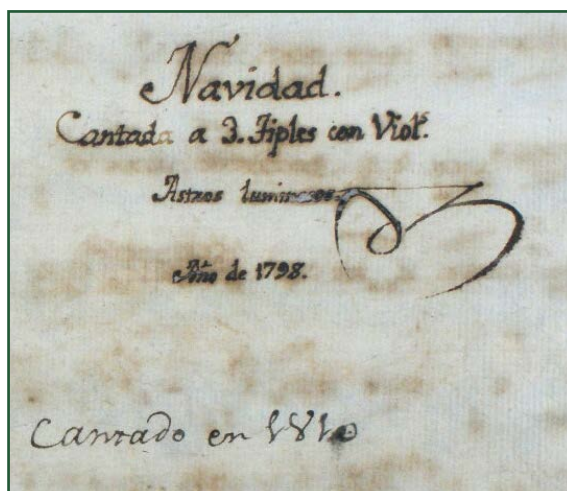 Navidad.
Cantada a 3. Tiples con Viol.s
Astros luminosos.
Año de 1798.
Cantado en 1810